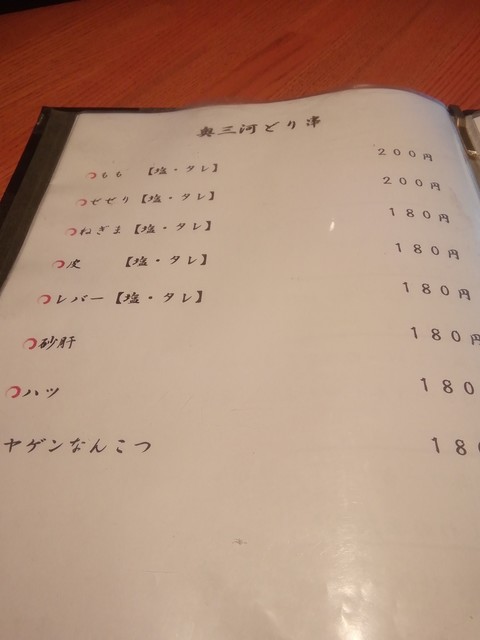 奥三河どり串
もも 【塩・タレ】 200円
せせり【塩・タレ】 200円
ねぎま【塩・タレ】 180円
皮 【塩・タレ】 180円
レバー【塩・タレ】 180円
砂肝 180円
ハツ 180
ヤゲンなんこつ 18